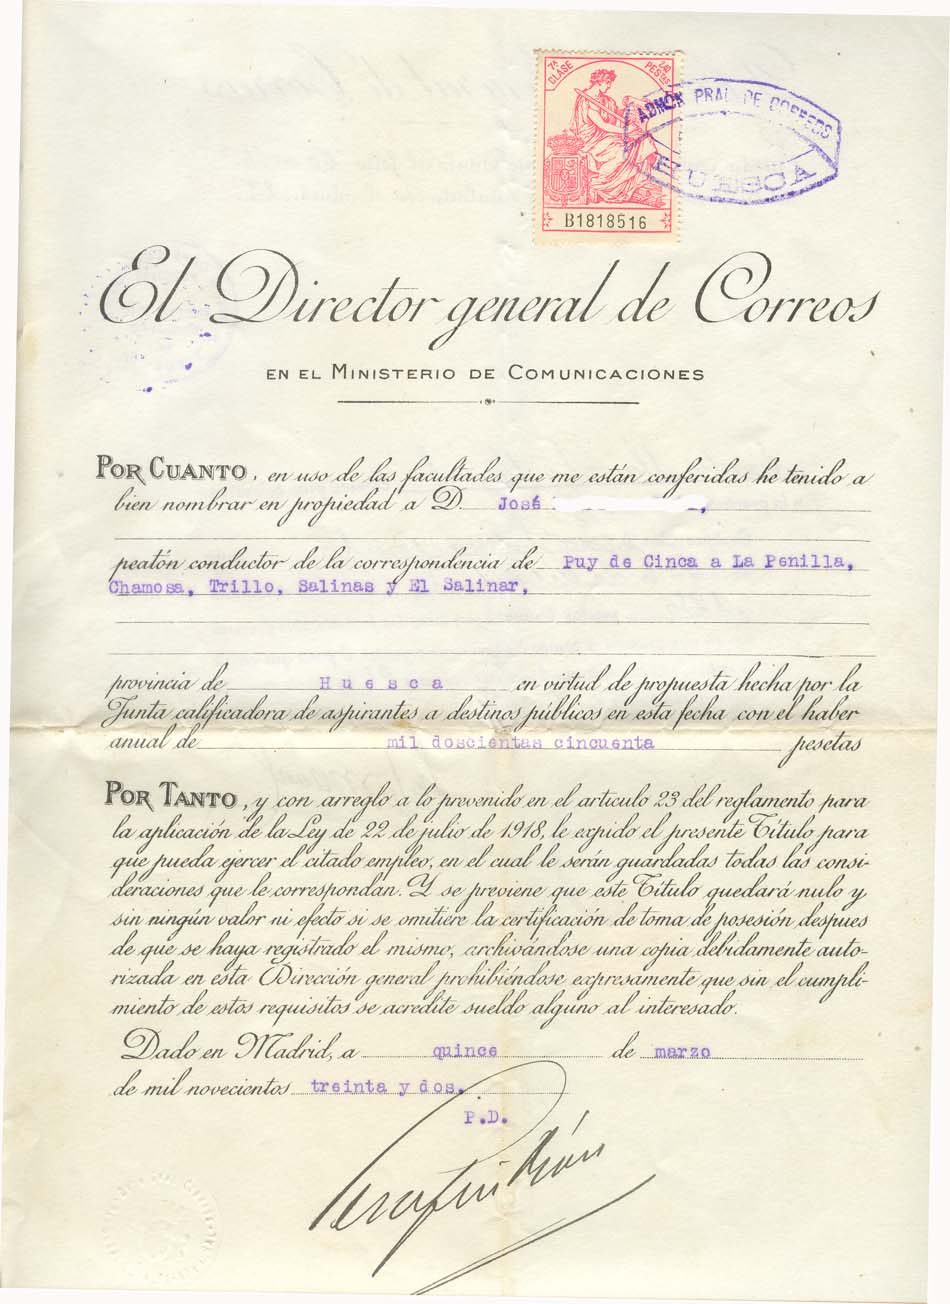 7ª CLASE
2'40 PESTAS
B1818516
ADMÓN PRAL DE CORREOS
HUESCA
El Director general de Correos
EN EL MINISTERIO DE COMUNICACIONES
POR CUANTO, en uso de las facultades que me están conferidas he tenido a
bien nombrar en propiedad a D. José
peatón conductor de la correspondencia de Puy de Cinca a La Penilla,
Chamosa, Trillo, Salinas y El Salinar,
provincia de Huesca en virtud de propuesta hecha por la
Junta calificadora de aspirantes a destinos públicos en esta fecha con el haber
anual de mil doscientas cincuenta pesetas
POR TANTO, y con arreglo a lo prevenido en el artículo 23 del reglamento para
la aplicación de la Ley de 22 de julio de 1918, le expido el presente Título para
que pueda ejercer el citado empleo, en el cual le serán guardadas todas las consi-
deraciones que le correspondan. Y se previene que este Título quedará nulo y
sin ningún valor ni efecto si se omitiere la certificación de toma de posesión despues
de que se haya registrado el mismo, archivándose una copia debidamente auto-
rizada en esta Dirección general prohibiéndose expresamente que sin el cumpli-
miento de estos requisitos se acredite sueldo alguno al interesado.
Dado en Madrid, a quince de marzo
de mil novecientos treinta y dos.
P.D.